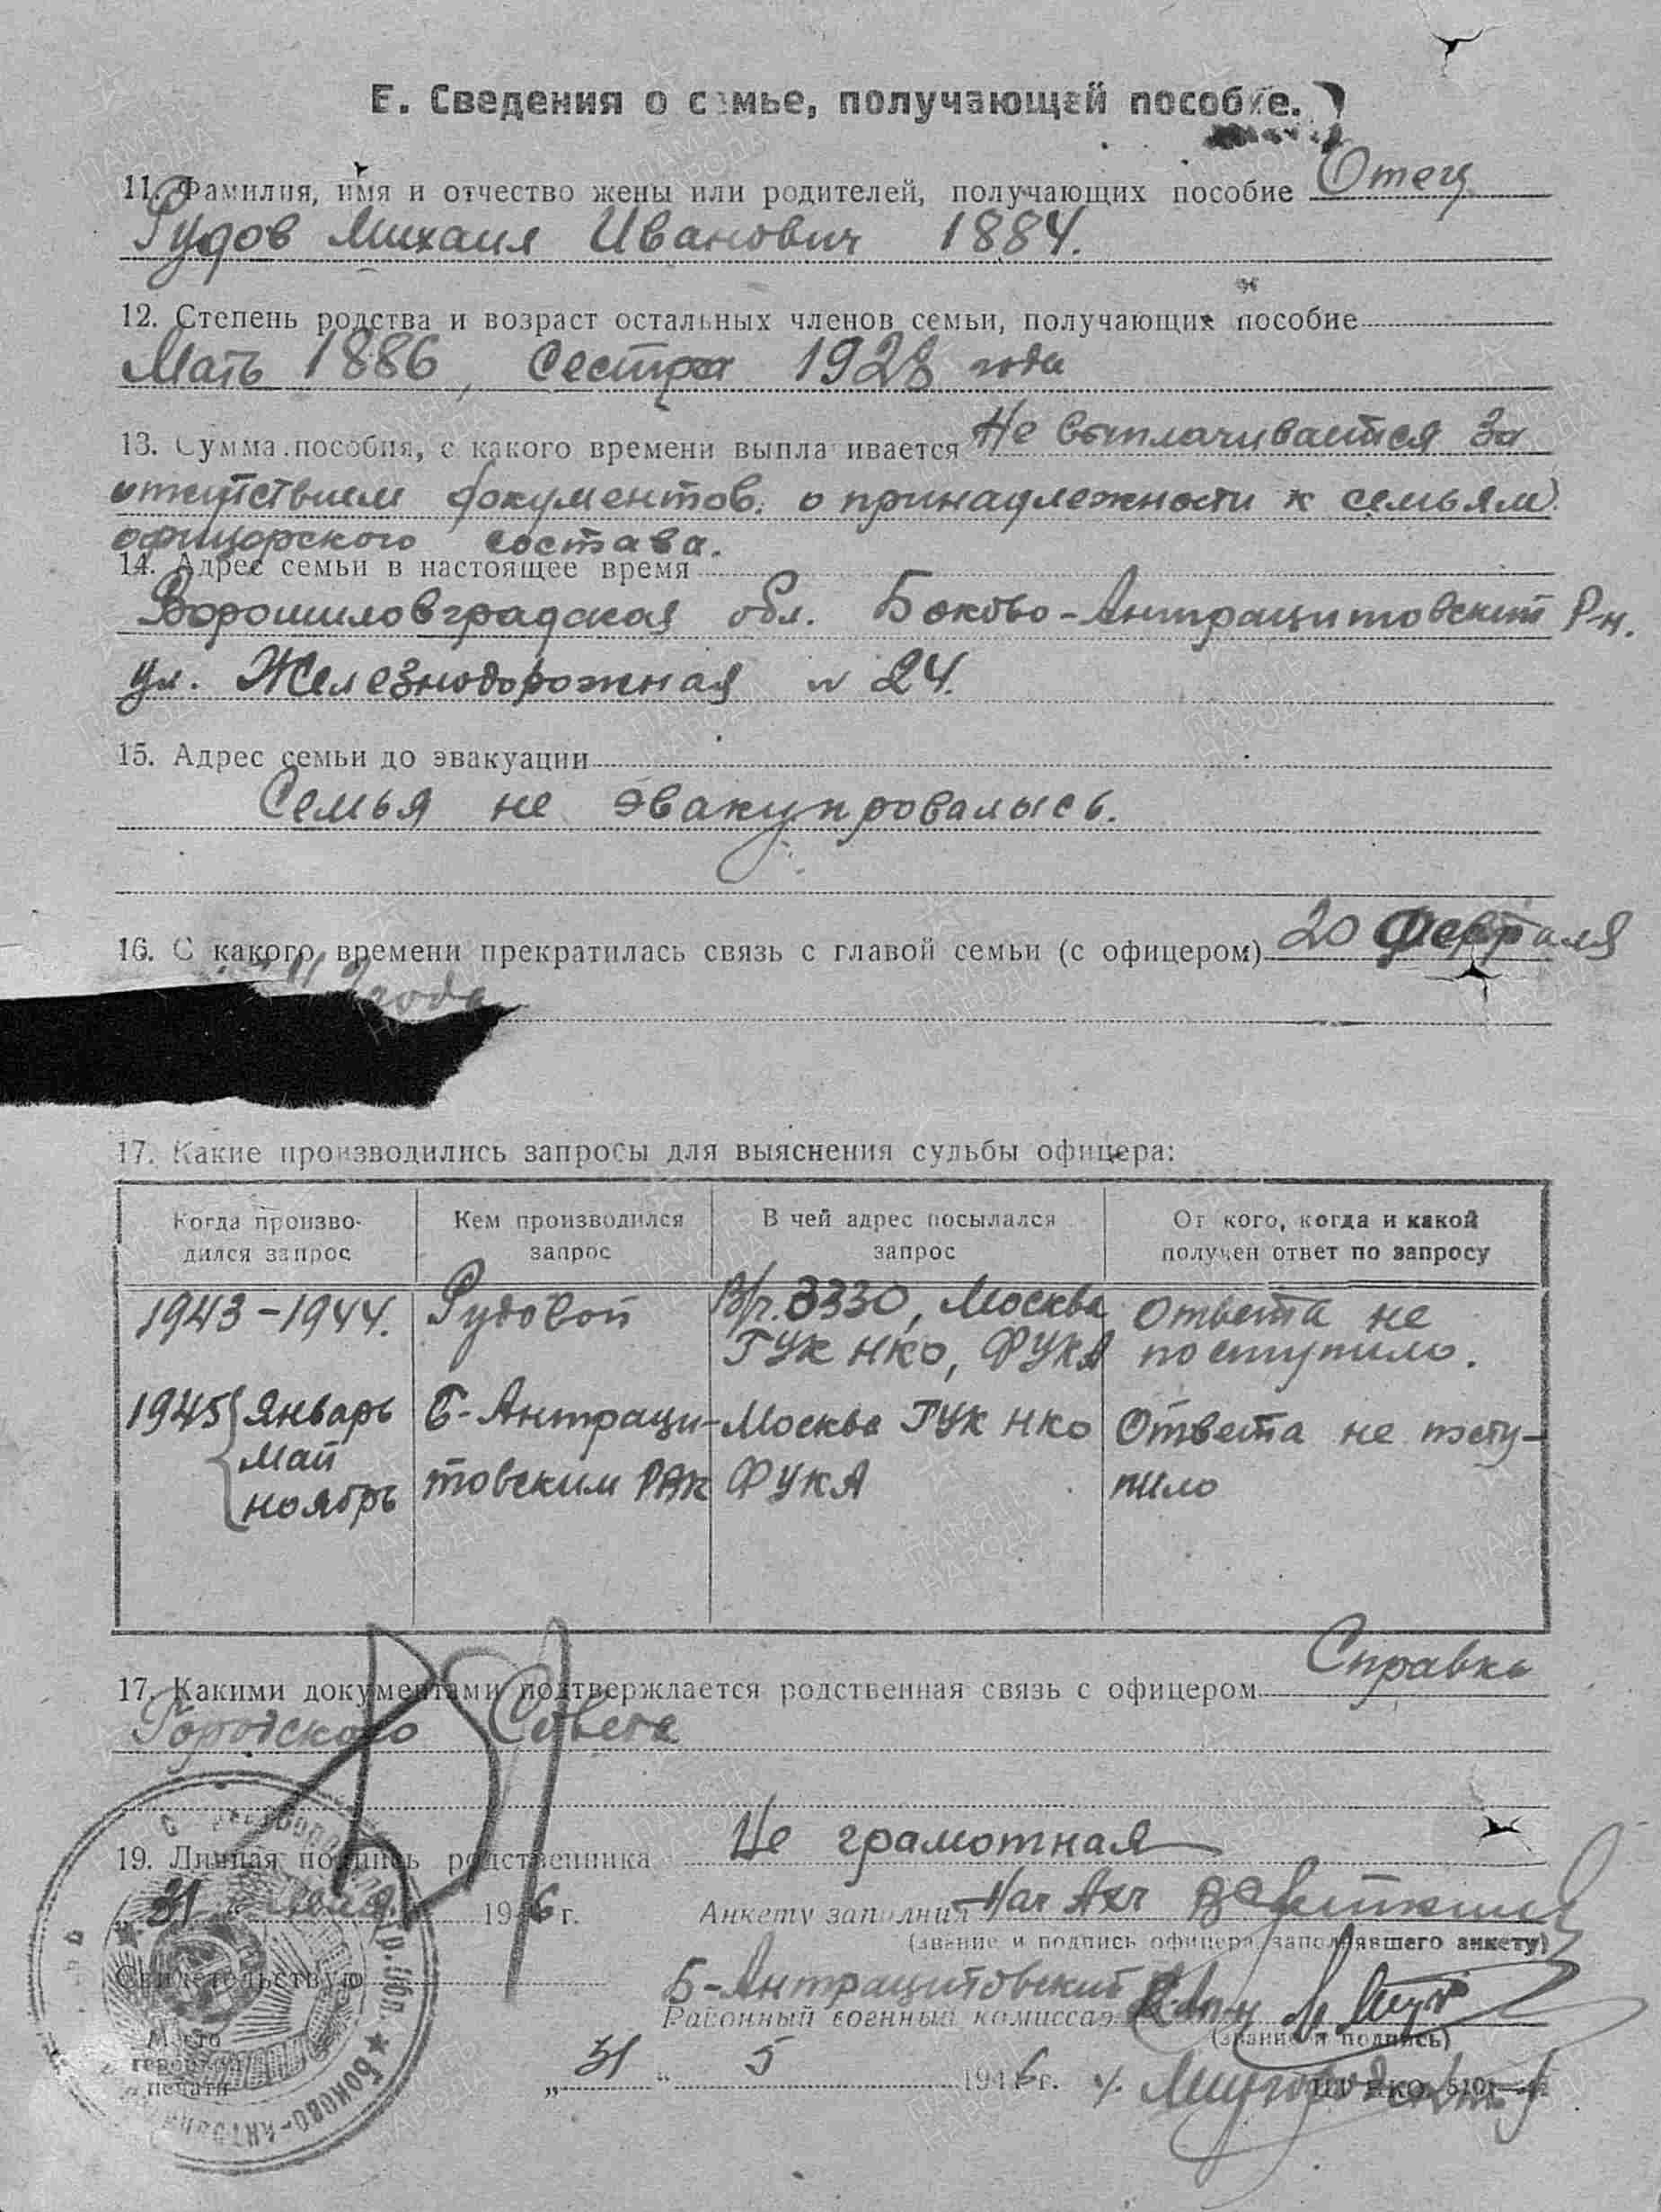 Е. Сведения о семье, получающей пособие.
11. Фамилия, имя и отчество жены или родителей, получающих пособие Отец
Рудов Михаил Иванович 1884.
12. Степень родства и возраст остальных членов семьи, получающих пособие
Мать 1886, Сестра 1928 года
13. Сумма пособия, с какого времени выплачивается Не выплачивается за
отсутствием документов о принадлежности к семьям
офицерского состава.
14. Адрес семьи в настоящее время
Ворошиловградская обл. Боково-Антрацитовский р-н.
ул. Железнодорожная № 24.
15. Адрес семьи до эвакуации
Семья не эвакуировалысь.
16. С какого времени прекратилась связь с главой семьи (с офицером) 20 февраля
года
17. Какие производились запросы для выяснения судьбы офицера:
Когда производился запрос
Кем производился запрос
В чей адрес посылался запрос
От кого, когда и какой получен ответ по запросу
1943-1944. Рудовой В/ч. 3330, Москва Ответа не
ГУК НКО, ФУКА поступило.
1945 Январь Б-Антраци- Москва ГУК НКО Ответа не посту-
май
товским РВК ФУКА пило
ноябрь
17. Какими документами подтверждается родственная связь с офицером Справка
Городского Совета
19. Личная подпись родственника Не грамотная
31 мая 1946 г. Анкету заполнил Нач
(звание и подпись офицера, заполнявшего анкету)
Свидетельствую Б-Антрацитовский
Районный военный комиссар
(звание и подпись)
Место гербовой печати
„31“ 5 1946 г.
БОКОВО-АНТРАЦИТ
ПАМЯТЬ НАРОДА